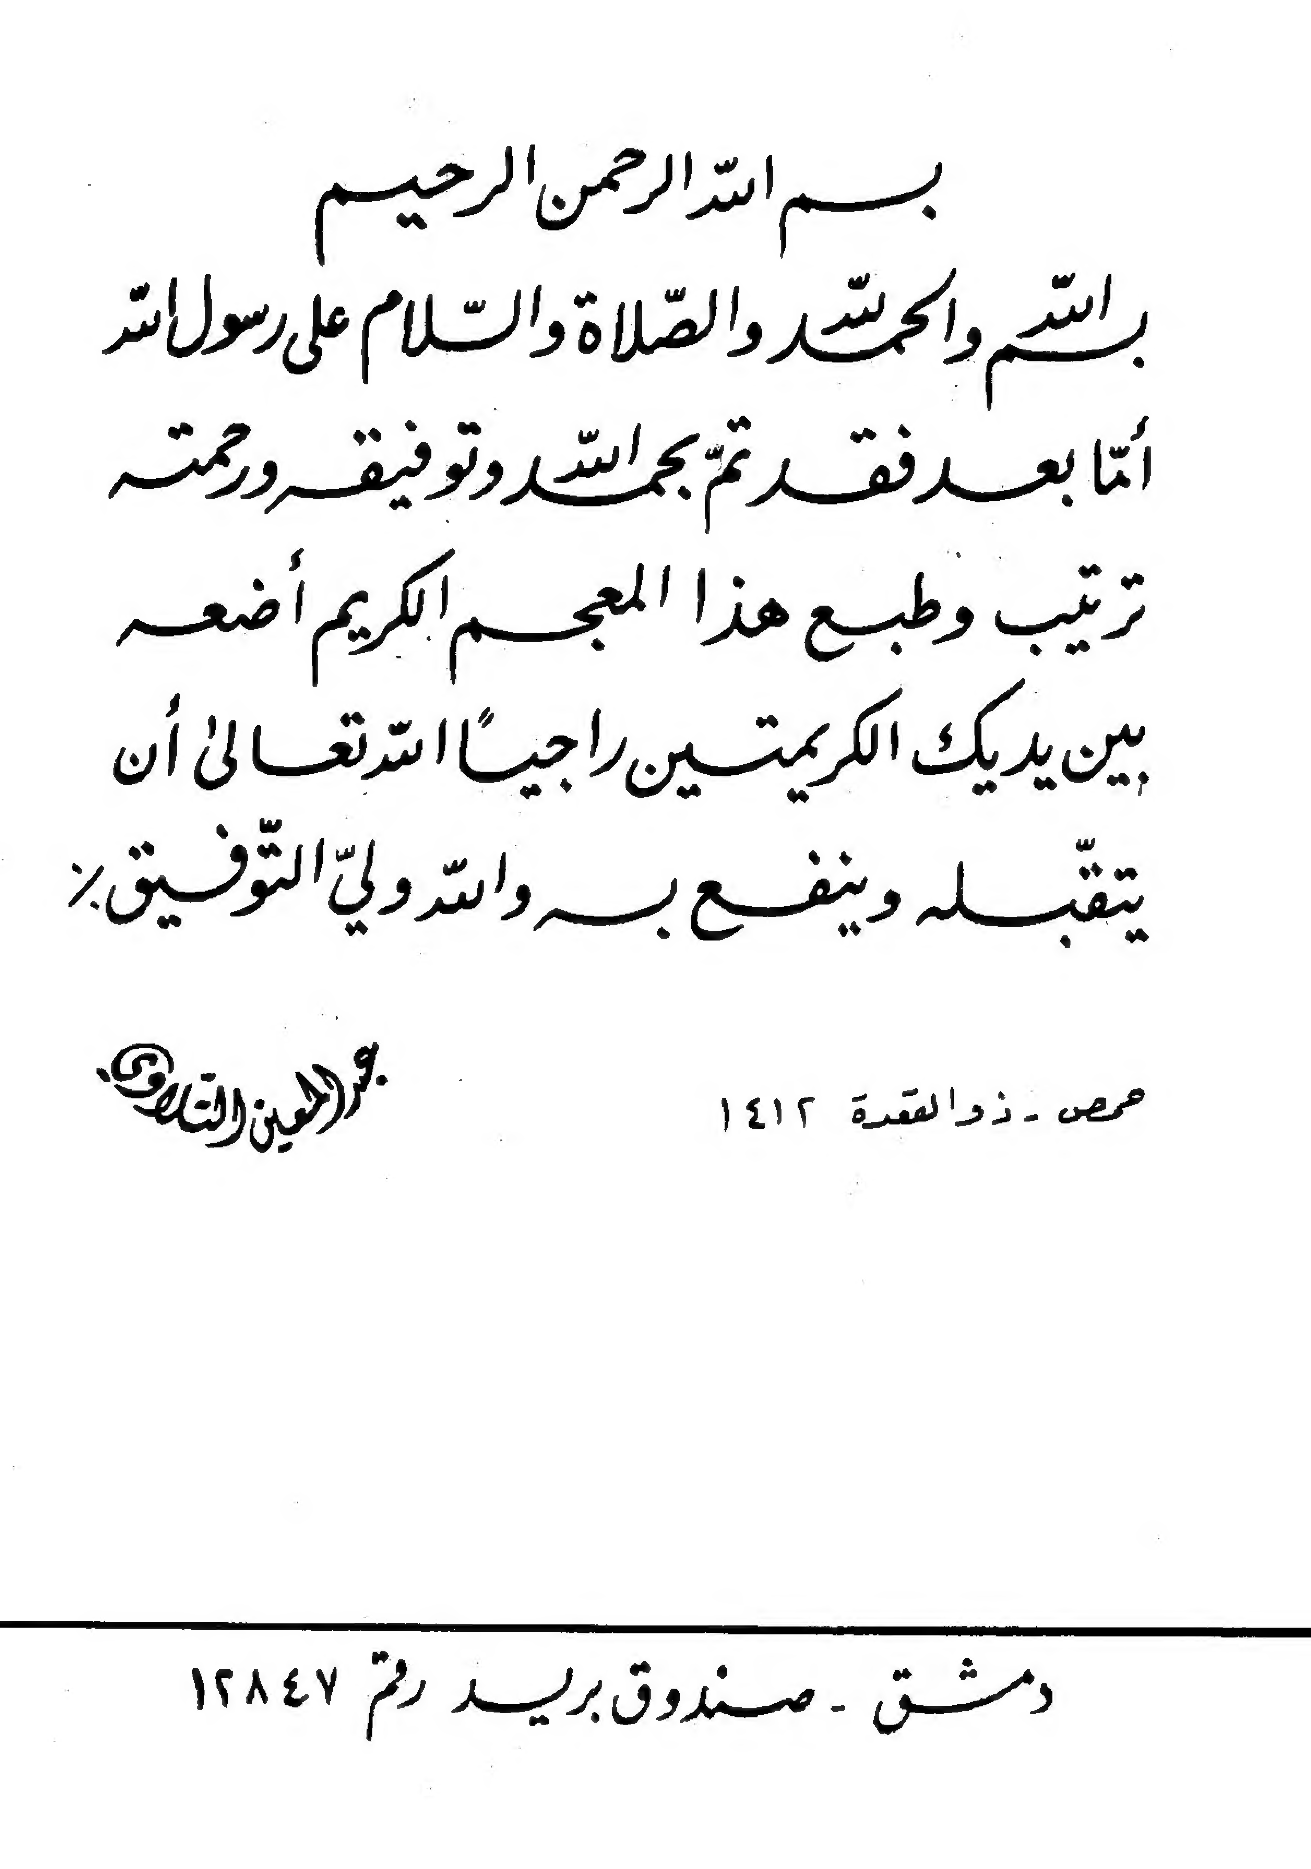 بسم الله الرحمن الرحيم
بسم الله والحمد لله والصّلاة والسّلام على رسول الله
أمّا بعد فقد تمّ بحمد الله وتوفيقه ورحمته
ترتيب وطبع هذا المعجم الكريم أضعه
بين يديك الكريمتين راجياً الله تعالىٰ أن
يتقبّله وينفع به والله وليّ التّوفيق ٪
حمص - ذو القعدة ١٤١٢
عبد المعين التلاوي
دمشق - صندوق بريد رقم ١٢٨٤٧